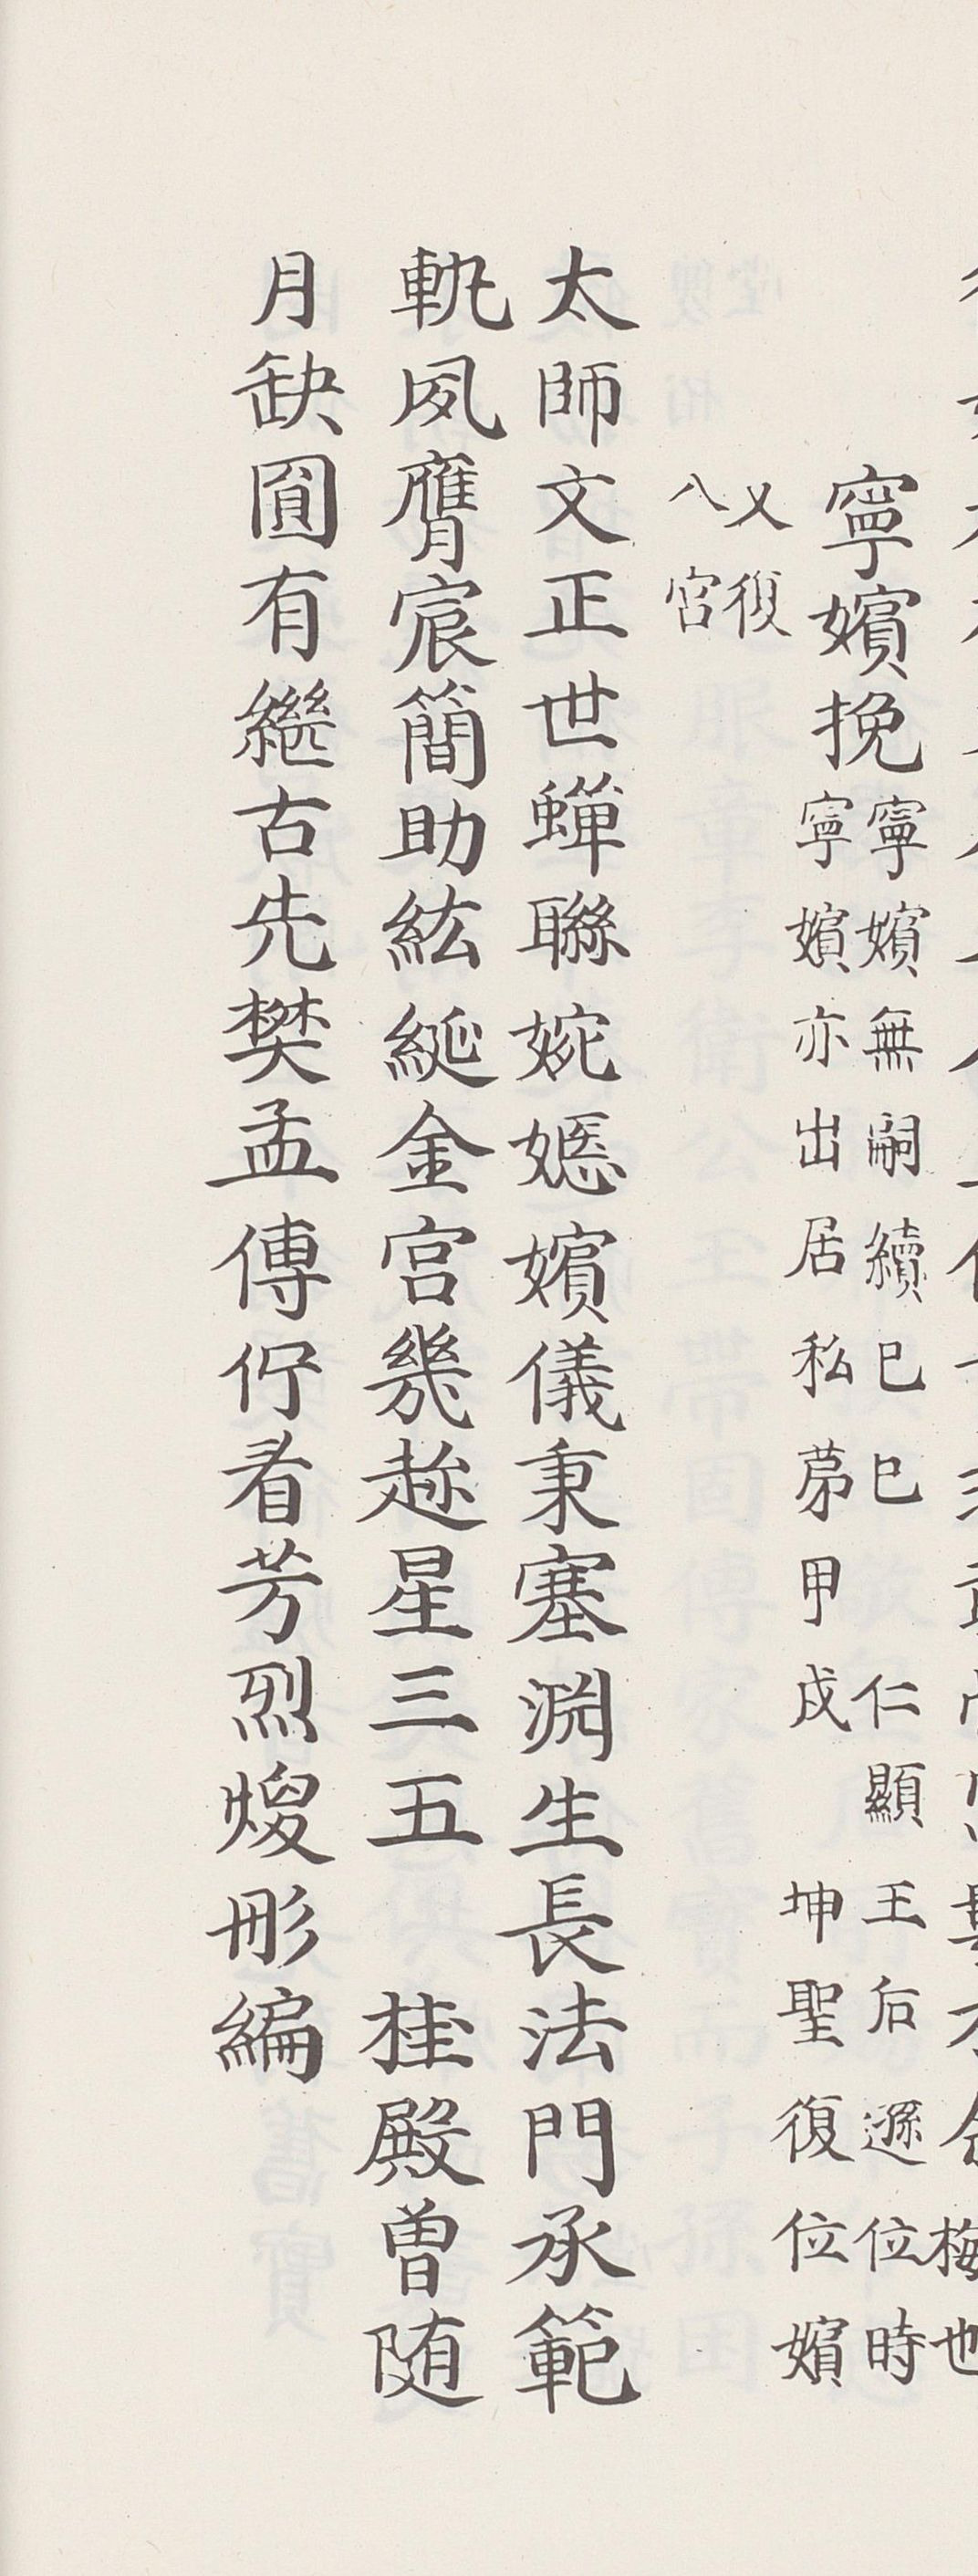 寧嬪挽
寧嬪無嗣續巳巳 仁顯王后遜位時
寧嬪亦出居私苐甲戌 坤聖復位嬪
又復
入宮
太師文正世蟬聯婉嫕嬪儀秉塞淵生長法門承範
軌夙膺宸簡助紘綖金宮幾趂星三五 桂殿曾随
月缺圓有繼古先樊孟傳佇看芳烈煥彤編